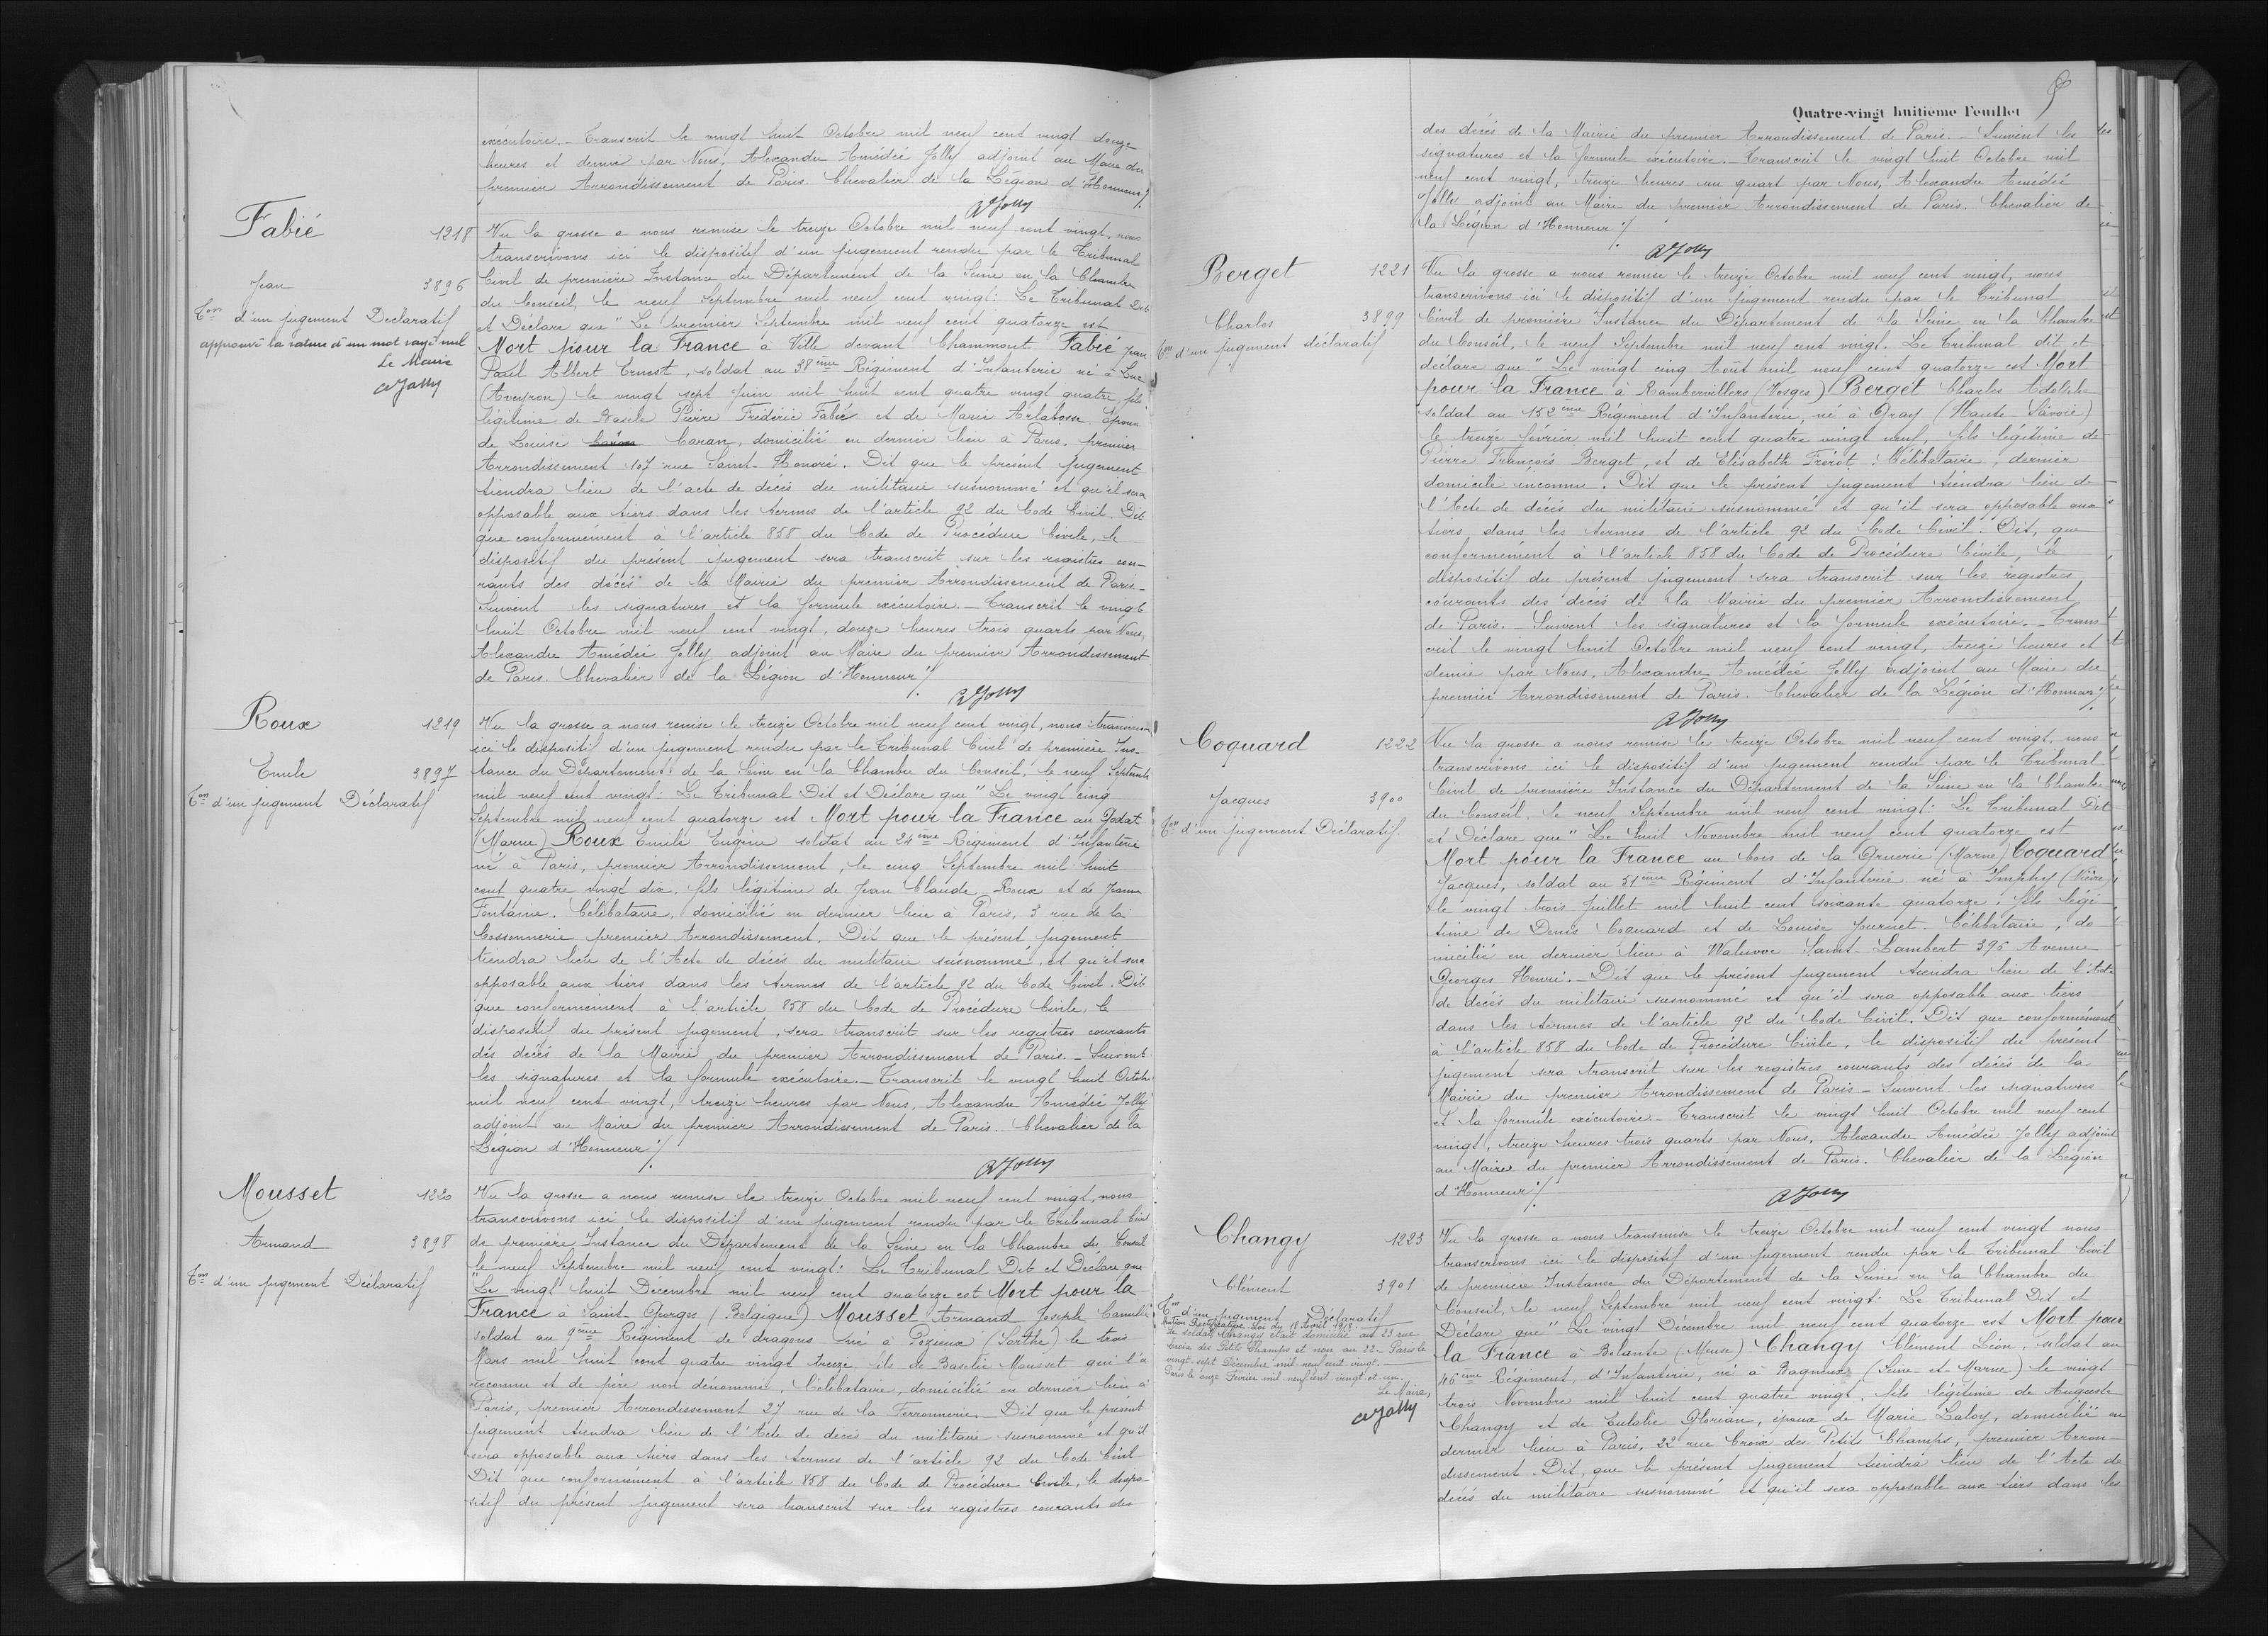 exécutoire. _ Transcrit le vingt huit Octobre mil neuf cent vingt douze
heures et demie par Nous, Alexandre Amédée Jolly adjoint au Maire du
premier Arrondissement de Paris. Chevalier de la Légion d'Honneur ./.
AJolly
Fabié
1218
Jean
3896
Ton d'un jugement Declaratif
approuvé la rature d'un mot rayé nul
Le Maire
AJolly
Vu la grosse a nous remise le treize Octobre mil neuf cent vingt, nous
transcrivons ici le dispositif d'un jugement rendu par le Tribunal
Civil de première Instance du Département de la Seine en la Chambre
du Conseil, le neuf Septembre mil neuf cent vingt: Le Tribunal Dit
et Déclare que "Le premier Septembre mil neuf cent quatorze est
Mort pour la France à Ville devant Chaumont Fabié Jean
Paul Albert Ernest, soldat au 38ème Régiment d'Infanterie né à Luc
(Aveyron) le vingt sept Juin mil huit cent quatre vingt quatre, fils
légitime de Basile Pierre Frédéric Fabié et de Marie Arlabosse. Epoux
de Louise Caran, domicilié en dernier lieu à Paris, premier
Arrondissement 107 rue Saint-Honoré. Dit que le présent Jugement
tiendra lieu de l'acte de décès du militaire susnommé et qu'il sera
opposable aux tiers dans les termes de l'article 92 du Code Civil. Dit
que conformément à l'article 858 du Code de Procédure Civile, le
dispositif du présent jugement sera transcrit sur les registres cou-
rants des décès de la Mairie du premier Arrondissement de Paris._
Suivent les signatures et la formule exécutoire. _ Transcrit le vingt
huit Octobre mil neuf cent vingt, douze heures trois quarts par Nous,
Alexandre Amédée Jolly adjoint au Maire du premier Arrondissement
de Paris. Chevalier de la Légion d'Honneur ./.
AJolly
Roux
1219
Emile
3897
Ton d'un jugement Déclaratif
Vu la grosse a nous remise le treize Octobre mil neuf cent vingt, nous transcrivons
ici le dispositif d'un jugement rendu par le Tribunal Civil de première Ins-
tance du Département de la Seine en la Chambre du Conseil, le neuf Septembre
mil neuf cent vingt: Le Tribunal Dit et Déclare que "Le vingt cinq
Septembre mil neuf cent quatorze est Mort pour la France au Godat
(Marne) Roux Emile Eugène soldat au 24ème Régiment d'Infanterie
né à Paris, premier Arrondissement, le cinq Septembre mil huit
cent quatre vingt dix, fils légitime de Jean Claude Roux et de Jeanne
Fontaine. Célibataire, domicilié en dernier lieu à Paris, 3 rue de la
Cossonnerie premier Arrondissement. Dit que le présent Jugement
tiendra lieu de l'Acte de décès du militaire susnommé, et qu'il sera
opposable aux tiers dans les termes de l'article 92 du Code Civil. Dit
que conformément à l'article 858 du Code de Procédure Civile, le
dispositif du présent jugement, sera transcrit sur les registres courants
des décès de la Mairie du premier Arrondissement de Paris._ Suivent
les signatures et la formule exécutoire._ Transcrit le vingt huit Octobre
mil neuf cent vingt, treize heures par Nous, Alexandre Amédée Jolly
adjoint au Maire du premier Arrondissement de Paris. Chevalier de la
Légion d'Honneur ./.
AJolly
Mousset
1220
Armand
3898
Ton d'un jugement Déclaratif
Vu la grosse a nous remise le treize Octobre mil neuf cent vingt, nous
transcrivons ici le dispositif d'un jugement rendu par le Tribunal Civil
de première Instance du Département de la Seine en la Chambre du Conseil
le neuf Septembre mil neuf cent vingt: Le Tribunal Dit et Déclare que
"Le vingt huit Décembre mil neuf cent quatorze est Mort pour la
France à Saint-Georges (Belgique) Mousset Armand Joseph Camille
soldat au 9ème Régiment de dragons né à Pezieux (Sarthe) le trois
Mars mil huit cent quatre vingt treize, fils de Basilie Mousset qui l'a
reconnu et de père non dénommé, Célibataire, domicilié en dernier lieu à
Paris, premier Arrondissement 27 rue de la Ferronnerie._ Dit que le présent
jugement tiendra lieu de l'Acte de décès du militaire susnommé et qu'il
sera opposable aux tiers dans les termes de l'article 92 du Code Civil
Dit que conformément à l'article 858 du Code de Procédure Civile, le dispo-
sitif du présent jugement sera transcrit sur les registres courants des
Quatre-vingt huitième Feuillet
des décès de la Mairie du premier Arrondissement de Paris._ Suivent les
signatures et la formule exécutoire. Transcrit le vingt huit Octobre mil
neuf cent vingt, treize heures un quart par Nous, Alexandre Amédée
Jolly adjoint au Maire du premier Arrondissement de Paris. Chevalier de
la Légion d'Honneur ./.
AJolly
Berget
1221
Charles
3899
Ton d'un jugement déclaratif
Vu la grosse a nous remise le treize Octobre mil neuf cent vingt, nous
transcrivons ici le dispositif d'un jugement rendu par le Tribunal
Civil de première Instance du Département de la Seine en la Chambre
du Conseil, le neuf Septembre mil neuf cent vingt. Le Tribunal dit et
déclare que "Le vingt cinq Août mil neuf cent quatorze est Mort
pour la France à Rambervillers (Vosges) Berget Charles Adolphe
soldat au 152ème Régiment d'Infanterie, né à Gray (Haute Savoie)
le treize février mil huit cent quatre vingt neuf, fils légitime de
Pierre François Berget, et de Elisabeth Frérot. Célibataire, dernier
domicile inconnu. Dit que le présent jugement tiendra lieu de
l'Acte de décès du militaire susnommé et qu'il sera opposable aux
tiers dans les termes de l'article 92 du Code Civil. Dit, que
conformément à l'article 858 du Code de Procédure Civile, le
dispositif du présent jugement sera transcrit sur les registres,
courants des décès de la Mairie du premier Arrondissement
de Paris._ Suivent les signatures et la formule exécutoire._ Trans-
crit le vingt huit Octobre mil neuf cent vingt, treize heures et
demie par Nous, Alexandre Amédée Jolly adjoint au Maire du
premier Arrondissement de Paris. Chevalier de la Légion d'Honneur ./.
AJolly
Coquard
1222
Jacques
3900
Ton d'un jugement Déclaratif.
Vu la grosse a nous remise le treize Octobre mil neuf cent vingt, nous
transcrivons ici le dispositif d'un jugement rendu par le Tribunal
Civil de première Instance du Département de la Seine en la Chambre
du Conseil, le neuf Septembre mil neuf cent vingt: Le Tribunal Dit
et Déclare que "Le huit Novembre mil neuf cent quatorze est
Mort pour la France au bois de la Gruerie (Marne) Coquard
Jacques, soldat au 51ème Régiment d'Infanterie né à Imphy (Nièvre)
le vingt trois Juillet mil huit cent soixante quatorze, fils légi-
time de Denis Coquard et de Louise Journet. Célibataire, do-
micilié en dernier lieu à Waluwoe Saint-Lambert 396 Avenue
Georges Henri._ Dit que le présent jugement tiendra lieu de l'Acte
de décès du militaire susnommé et qu'il sera opposable aux tiers
dans les termes de l'article 92 du Code Civil. Dit que conformément
à l'article 858 du Code de Procédure Civile, le dispositif du présent
jugement sera transcrit sur les registres courants des décès de la
Mairie du premier Arrondissement de Paris._ Suivent les signatures
et la formule exécutoire._ Transcrit le vingt huit Octobre mil neuf cent
vingt, treize heures trois quarts par Nous, Alexandre Amédée Jolly adjoint
au Maire du premier Arrondissement de Paris. Chevalier de la Légion
d'Honneur ./.
AJolly
Changy
1223
Clément
3901
Ton d'un jugement Déclaratif
Rectification Loi du 18 Avril 1918.
Le soldat Changy était domicilié au 23 rue
Croix des Petits Champs et non au 22._ Paris le
vingt-sept Décembre mil neuf cent vingt.
Paris le onze Février mil neuf cent vingt et un.
Le Maire,
AJolly
Vu la grosse a nous transmise le treize Octobre mil neuf cent vingt nous
transcrivons ici le dispositif d'un jugement rendu par le Tribunal Civil
de première Instance du Département de la Seine en la Chambre du
Conseil, le neuf Septembre mil neuf cent vingt: Le Tribunal Dit et
Déclare que "Le vingt Décembre mil neuf cent quatorze est Mort pour
la France à Bolante (Meuse) Changy Clément Léon, soldat au
46ème Régiment d'Infanterie, né à Bagneux (Seine et Marne) le vingt
trois Novembre mil huit cent quatre vingt, fils légitime de Auguste
Changy et de Eulalie Glorian, époux de Marie Laloy, domicilié en
dernier lieu à Paris, 22 rue Croix des Petits Champs, premier Arron-
dissement. Dit, que le présent jugement tiendra lieu de l'Acte de
décès du militaire susnommé et qu'il sera opposable aux tiers dans les